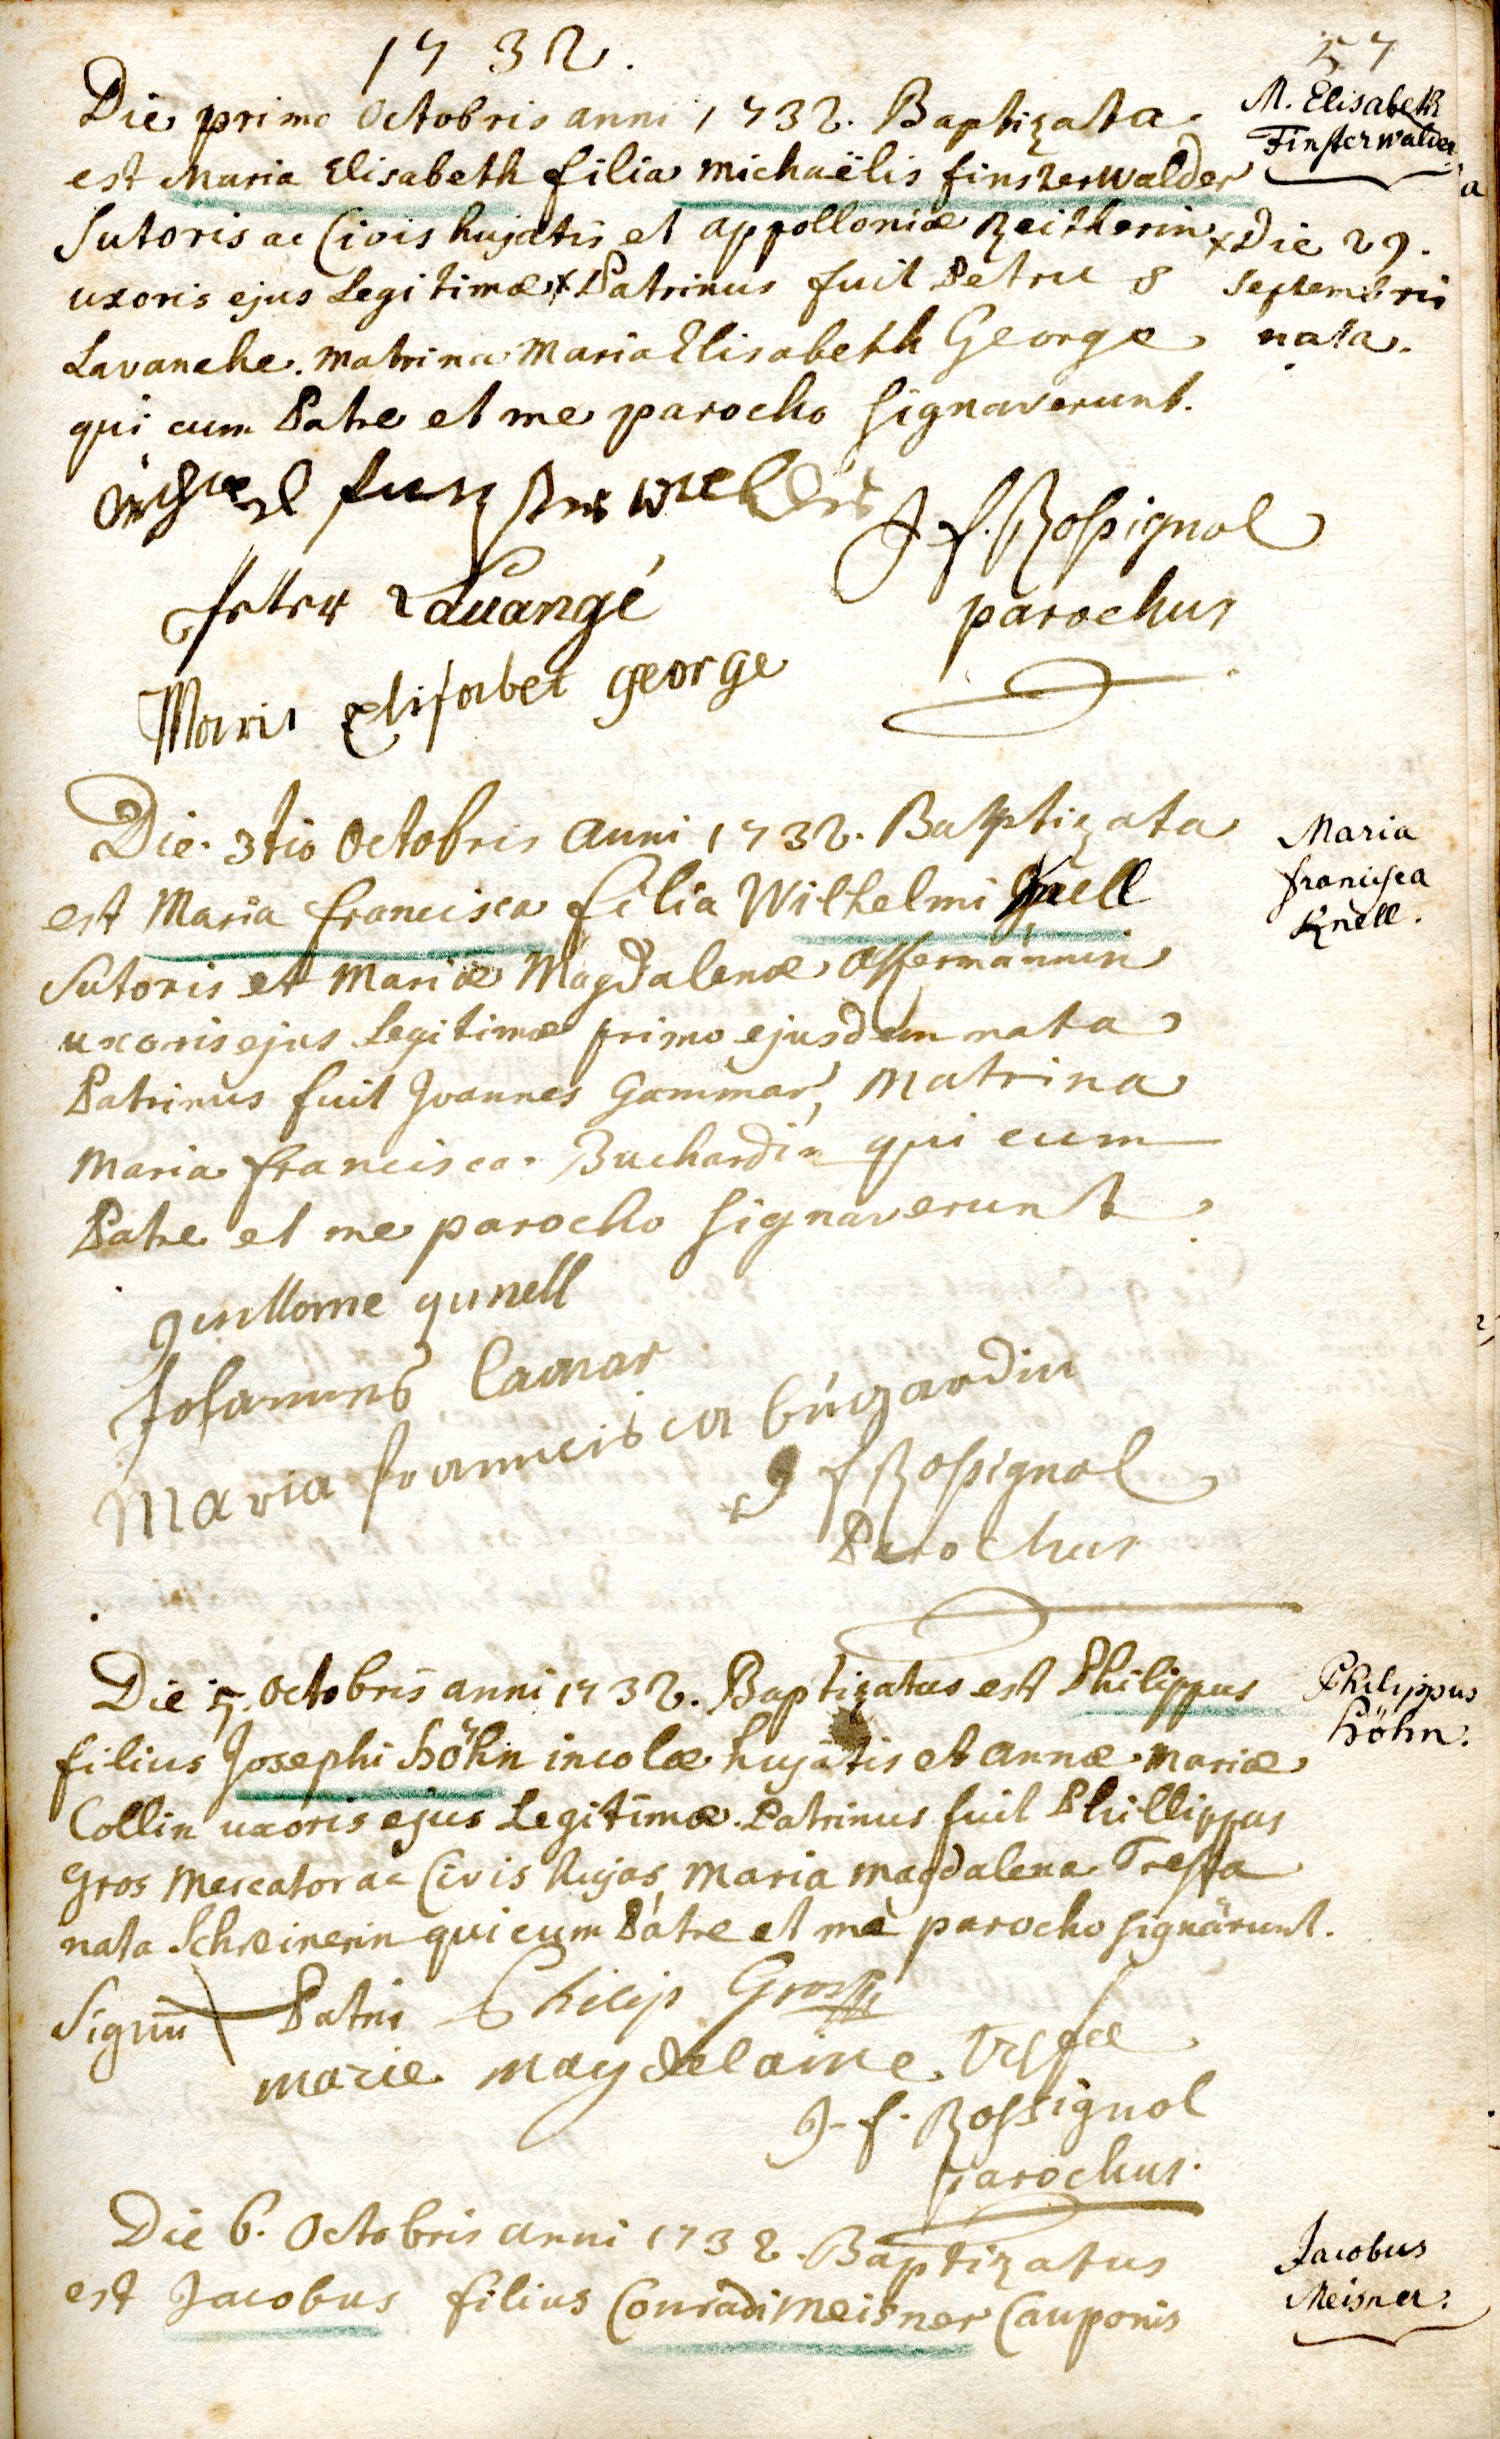 1732.
57
Die primo Octobris anni 1732. Baptizata
est Maria Elisabeth filia Michaëlis finsterwalder
Sutoris ac Civis hujatis et appolloniæ Zeitherin
uxoris ejus Legitimæ x Patrinus fuit Petrus
Lavanche. Matrina Maria Elisabeth George
qui cum Patre et me parocho signaverunt.
M. Elisabeth
Finsterwalder
x Die 29.
Septembris
nata.
J. f. Rossignol
parochus
Peter Lauangé
Maria Elisabet george
Die 3tio Octobris Anni 1732. Baptizata
est Maria francisca filia Wilhelmi Knell
Sutoris et Mariæ Magdalenæ Offermännin
uxoris ejus Legitimæ primo ejusdem nata
Patrinus fuit Joannes Gammar, Matrina
Maria francisca Buchardin qui cum
Patre et me parocho signaverunt.
Maria
francisca
Knell.
guillome qunell
Johannes Camar
Maria francisca
J f Rossignol
Parochus
Die 5. Octobris anni 1732. Baptizatus est Philippus
filius Josephi Höhn incolæ hujatis et annæ Mariæ
Collin uxoris ejus Legitimæ. Patrinus fuit Phillippus
Gros Mercator ac Civis hujas, Maria Magdalena Tressa
nata Schreinerin qui cum Patre et me parocho signärunt.
Philippus
Höhn.
Signu Patris Philip Gross
marie magdelaine
J. f. Rossignol
parochus.
Die 6. Octobris anni 1732. Baptizatus
est Jacobus filius Conradi Meisner Cauponis
Jacobus
Meisner.